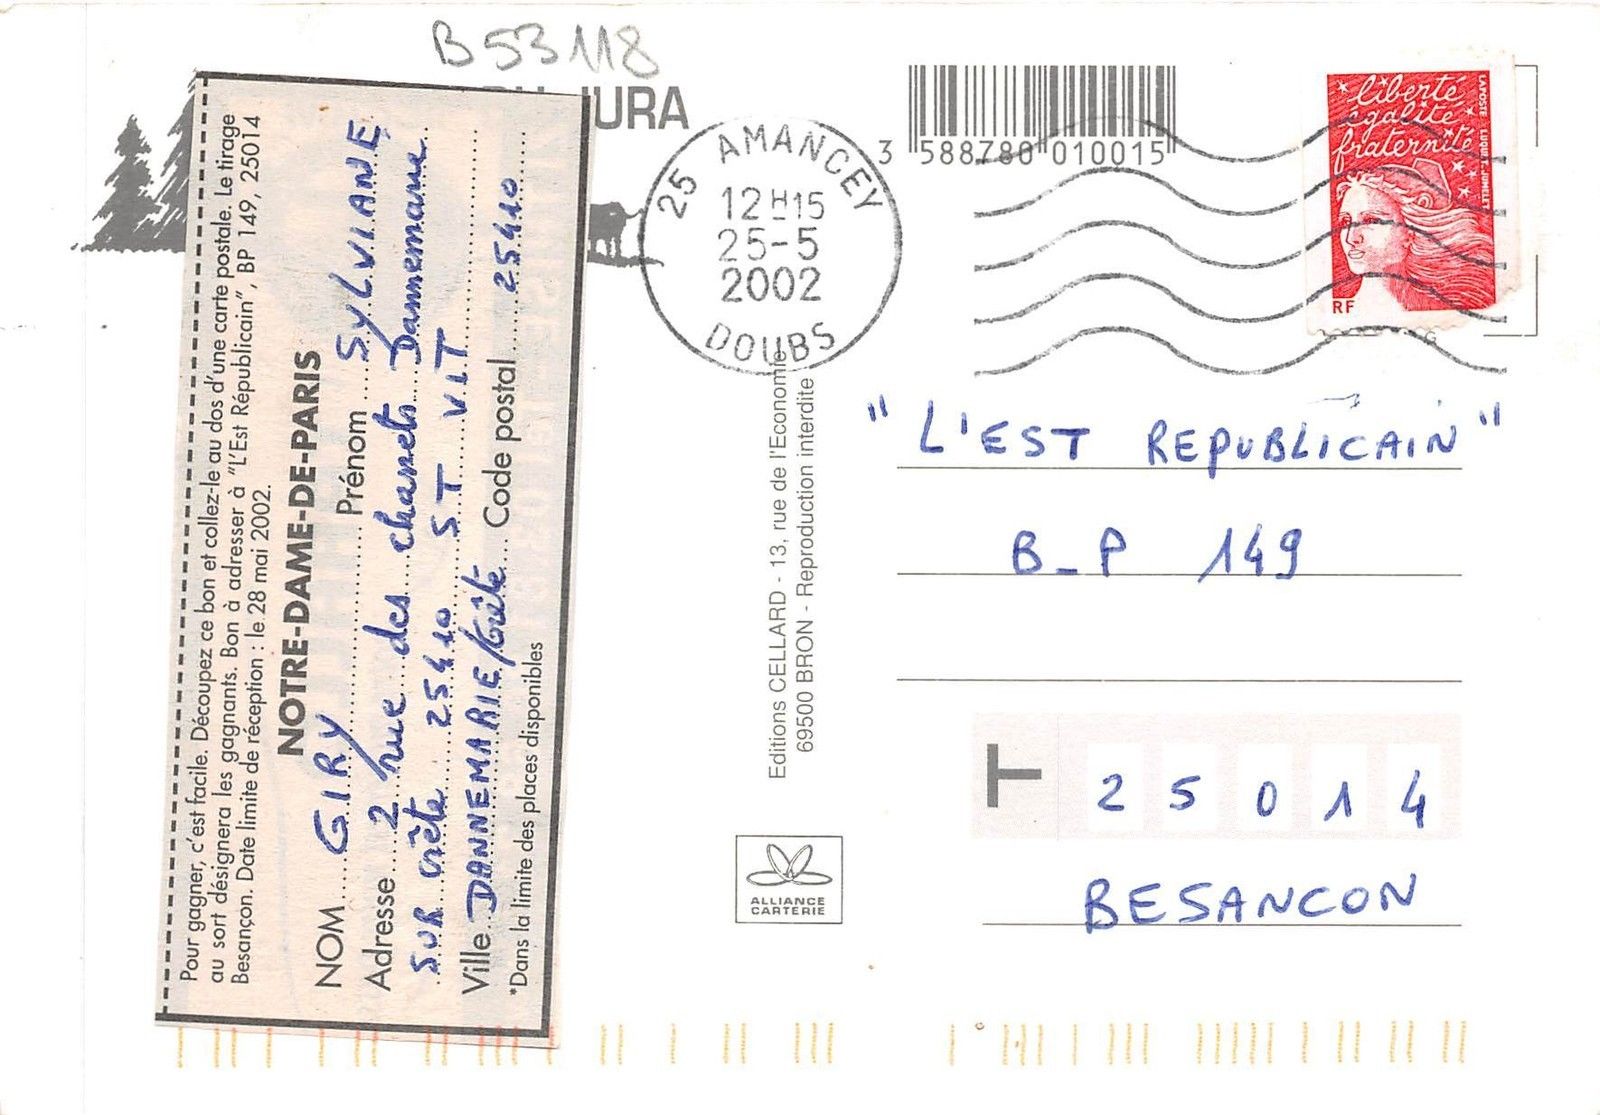 B53118
JURA
Pour gagner, c'est facile. Découpez ce bon et collez-le au dos d'une carte postale. Le tirage
au sort désignera les gagnants. Bon à adresser à "L'Est Républicain", BP 149, 25014
Besançon. Date limite de réception : le 28 mai 2002.
NOTRE-DAME-DE-PARIS
NOM GIRY Prénom SYLVIANE
Adresse 2 rue des chanets Dannemarie
SUR crête 25410 ST VIT
Ville DANNEMARIE/Crête Code postal 25410
*Dans la limite des places disponibles
25 AMANCEY
12H15
25-5
2002
DOUBS
3 588780 010015
liberté
égalité
fraternité
LA POSTE LUQUET-JUMELET
RF
Editions CELLARD - 13, rue de l'Economie
69500 BRON - Reproduction interdite
ALLIANCE
CARTERIE
"L'EST REPUBLICAIN"
B_P 149
T 25014
BESANCON